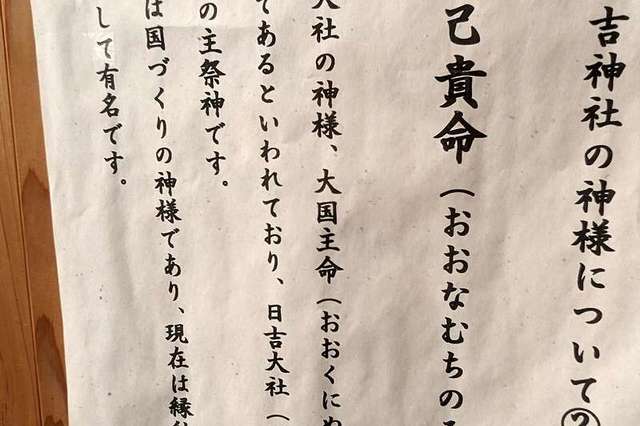 吉神社の神様について②
己貴命（おおなむちの
大社の神様、大国主命（おおくにぬ
てあるといわれており、日吉大社（
の主祭神です。
は国づくりの神様であり、現在は縁
して有名です。